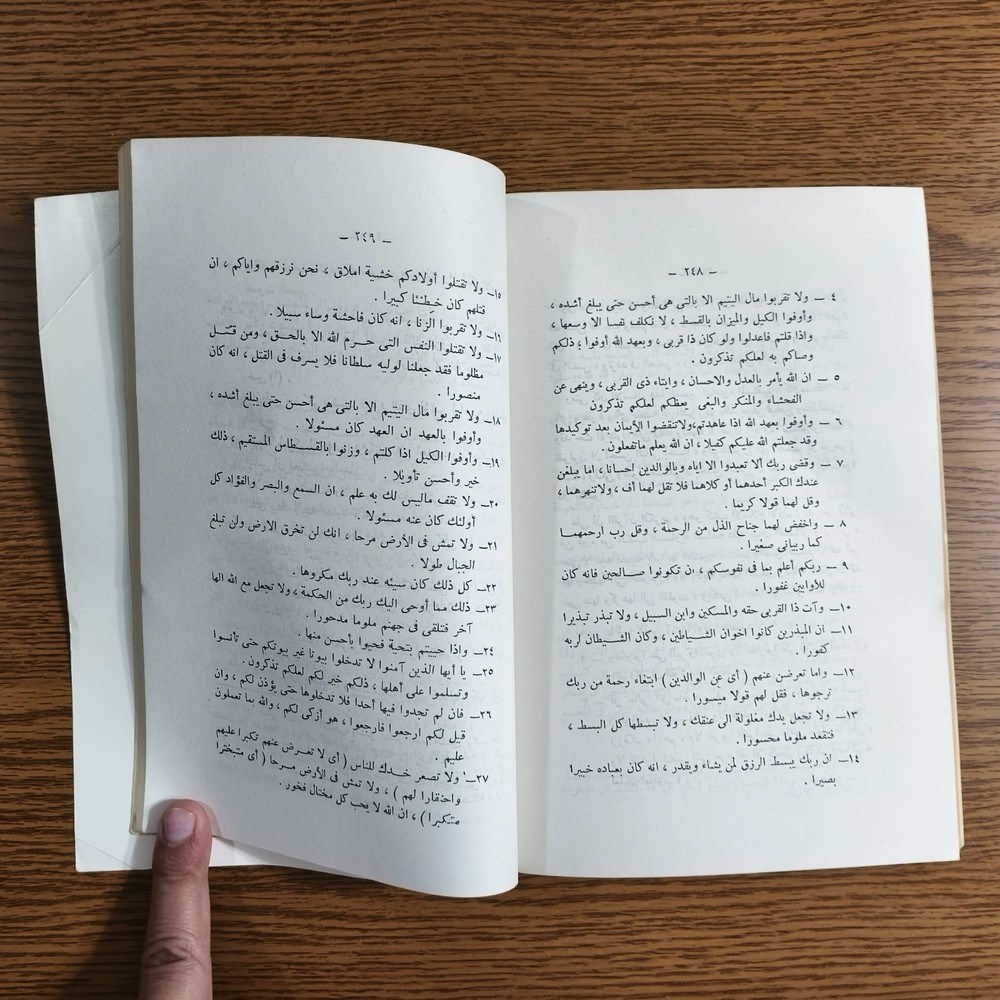 — ٢٤٨ —
٤ — ولا تقربوا مال اليتيم الا بالتى هى أحسن حتى يبلغ أشده ،
وأوفوا الكيل والميزان بالقسط ، لا نكلف نفسا الا وسعها ،
واذا قلتم فاعدلوا ولو كان ذا قربى ، وبعهد الله أوفوا ؛ ذلكم
وصاكم به لعلكم تذكرون .
٥ — ان الله يأمر بالعدل والاحسان ، وايتاء ذى القربى ، وينهى عن
الفحشاء والمنكر والبغى يعظكم لعلكم تذكرون
٦ — وأوفوا بعهد الله اذا عاهدتم،ولاتنقضوا الأيمان بعد توكيدها
وقد جعلتم الله عليكم كفيلا ، ان الله يعلم ماتفعلون .
٧ — وقضى ربك ألا تعبدوا الا اياه وبالوالدين احسانا ، اما يبلغن
عندك الكبر أحدهما أو كلاهما فلا تقل لهما أف ، ولاتنهرهما ،
وقل لهما قولا كريما .
٨ — واخفض لهما جناح الذل من الرحمة ، وقل رب ارحمهمــا
كما ربيانى صغيرا .
٩ — ربكم أعلم بما فى نفوسكم ، ان تكونوا صــالحين فانه كان
للأوابين غفورا .
١٠— وآت ذا القربى حقه والمسكين وابن السبيل ، ولا تبذر تبذيرا
١١— ان المبذرين كانوا اخوان الشــياطين ، وكان الشــيطان لربه
كفورا .
١٢— واما تعرضن عنهم ( أى عن الوالدين ) ابتغاء رحمة من ربك
ترجوها ، فقل لهم قولا ميسورا .
١٣— ولا تجعل يدك مغلولة الى عنقك ، ولا تبسطها كل البسط ،
فتقعد ملوما محسورا .
١٤— ان ربك يبسط الرزق لمن يشاء ويقدر ، انه كان بعباده خبيرا
بصيرا .
— ٢٤٩ —
١٥— ولا تقتلوا أولادكم خشية املاق ، نحن نرزقهم واياكم ، ان
قتلهم كان خـِطـْئا كبيرا .
١٦— ولا تقربوا الزنا ، انه كان فاحشة وساء سبيلا .
١٧— ولا تقتلوا النفس التى حـرم الله الا بالحق ، ومن قتـل
مظلوما فقد جعلنا لوليه سلطانا فلا يسرف فى القتل ، انه كان
منصورا .
١٨— ولا تقربوا مال اليتيم الا بالتى هى أحسن حتى يبلغ أشده ،
وأوفوا بالعهد ان العهد كان مسئولا .
١٩— وأوفوا الكيل اذا كلتم ، وزنوا بالقســطاس المستقيم ، ذلك
خير وأحسن تأويلا .
٢٠— ولا تقف ماليس لك به علم ، ان السمع والبصر والفؤاد كل
أولئك كان عنه مسئولا .
٢١— ولا تمش فى الأرض مرحا ، انك لن تخرق الارض ولن تبلغ
الجبال طولا .
٢٢— كل ذلك كان سيئه عند ربك مكروها .
٢٣— ذلك مما أوحى اليك ربك من الحكمة ، ولا تجعل مع الله الها
آخر فتلقى فى جهنم ملوما مدحورا .
٢٤— واذا حييتم بتحية فحيوا بأحسن منها .
٢٥— يا أيها الذين آمنوا لا تدخلوا بيوتا غير بيوتكم حتى تأنسوا
وتسلموا على أهلها ، ذلكم خير لكم لعلكم تذكرون .
٢٦— فان لم تجدوا فيها أحدا فلا تدخلوها حتى يؤذن لكم ، وان
قيل لكم ارجعوا فارجعوا ، هو أزكى لكم ، والله بما تعملون
عليم .
٢٧— ولا تصعر خـدك للناس ( أى لا تعـرض عنهم تكبرا عليهم
واحتقارا لهم ) ، ولا تمش فى الأرض مـرحا ( أى متبخترا
متكبرا ) ، ان الله لا يحب كل مختال فخور .